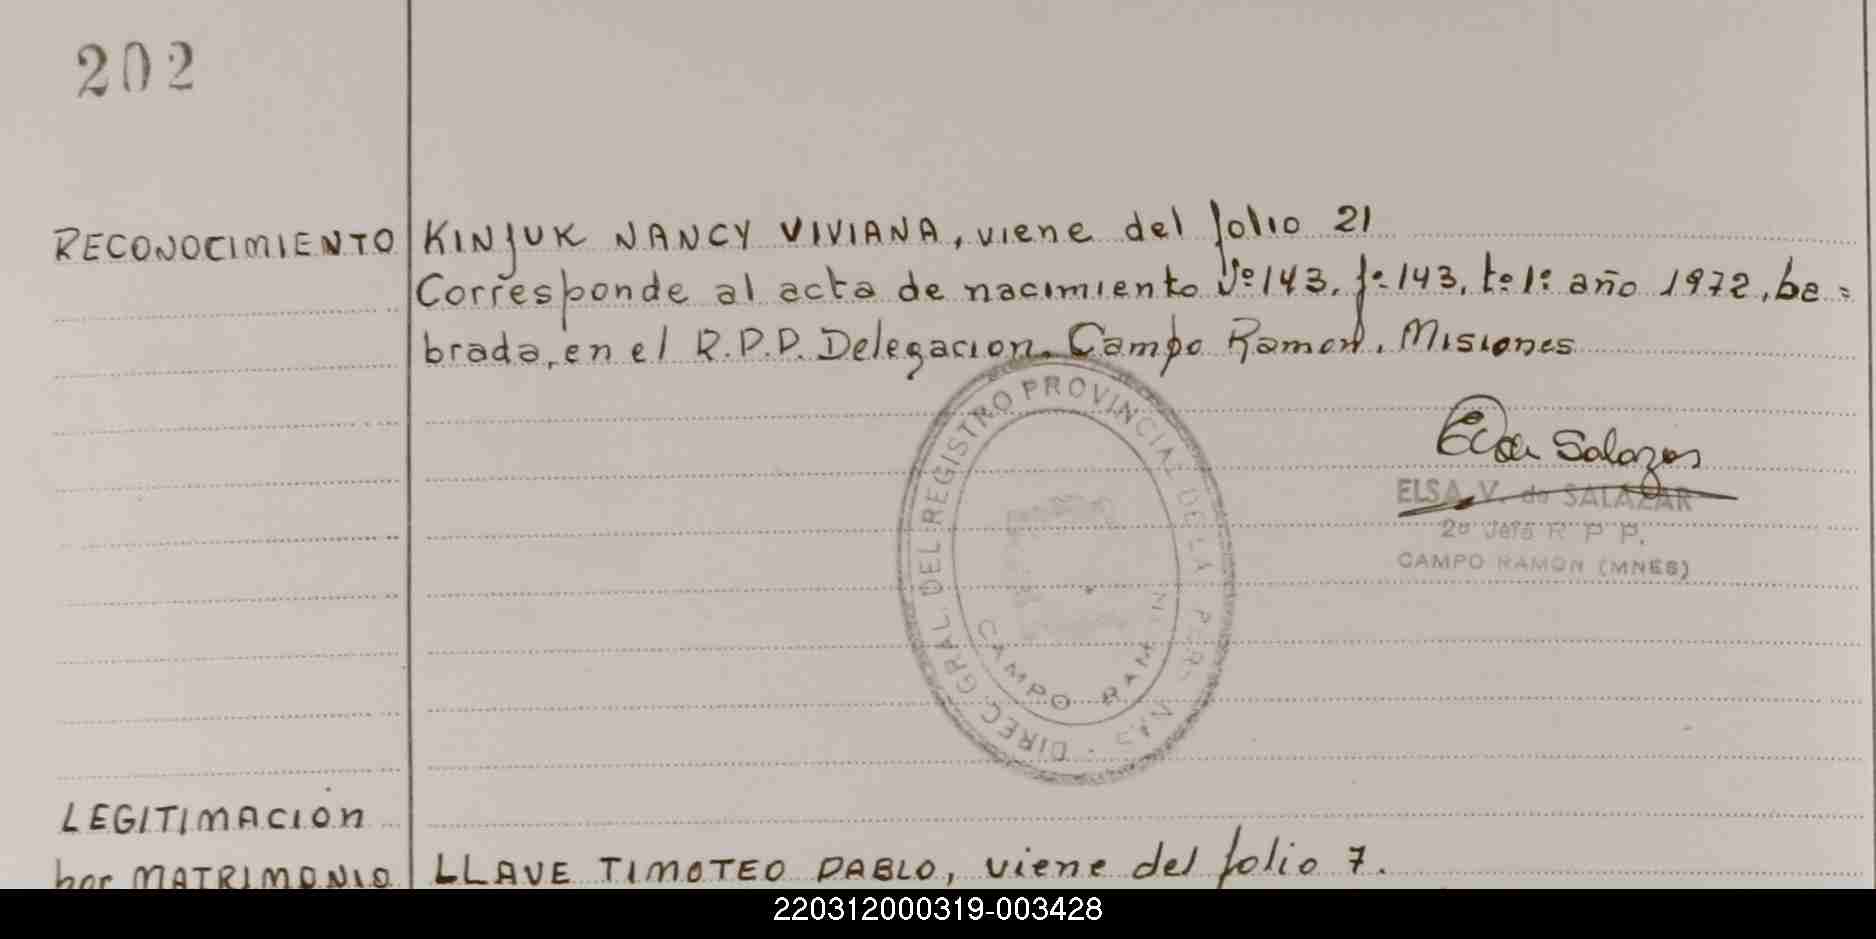 202
RECONOCIMIENTO KINJUK NANCY VIVIANA, viene del folio 21
Corresponde al acta de nacimiento Nº 143, fº 143, tº 1º año 1972, be=
brada, en el R.P.P. Delegacion, Campo Ramon, Misiones
Elsa Salazar
ELSA V. de SALAZAR
2º Jefa R P P.
CAMPO RAMON (MNES)
DIREC. GRAL. DEL REGISTRO PROVINCIAL DE LA PERS.
CAMPO RAMON
LEGITIMACIÓN
por MATRIMONIO LLAVE TIMOTEO PABLO, viene del folio 7.
220312000319-003428